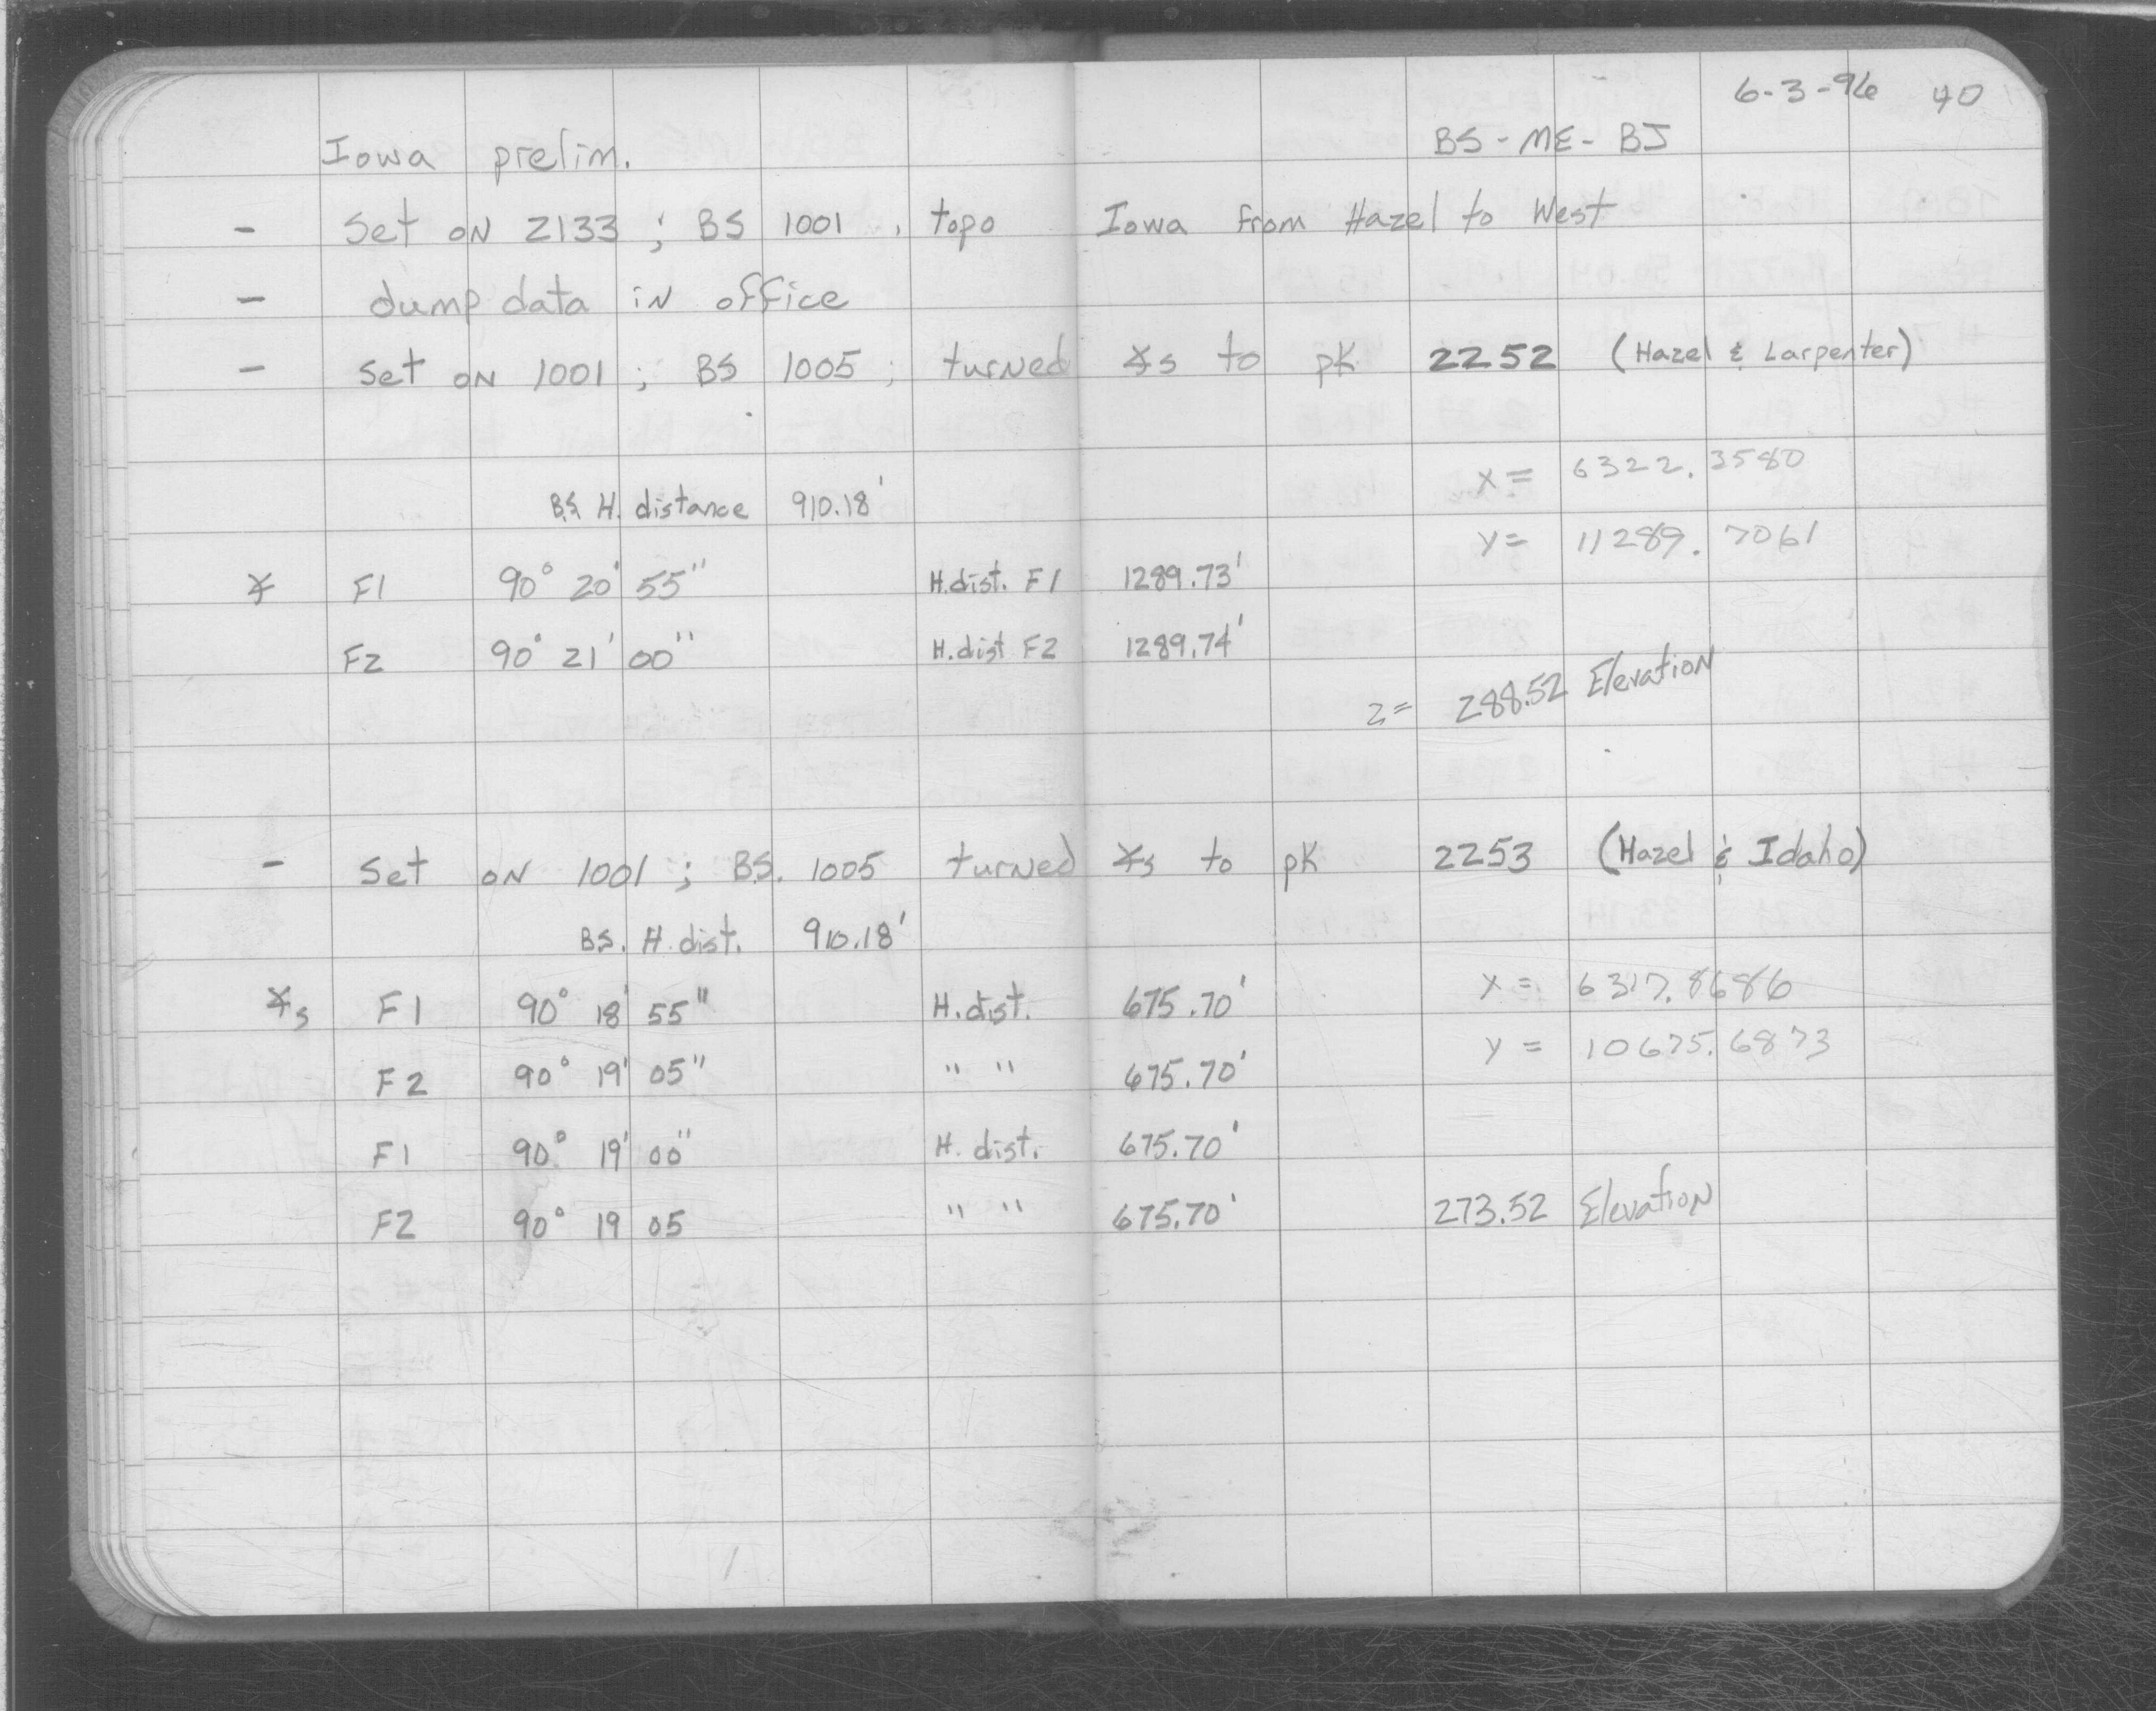 6-3-96 40
BS-ME-BJ
Iowa prelim.
- Set on 2133 ; BS 1001 , topo Iowa from Hazel to West
- dump data in office
- Set on 1001 ; BS 1005 ; turned ∡s to pk 2252 (Hazel & Larpenter)
x = 6322.3580
BS H. distance 910.18'
y = 11289.7061
∡ F1 90° 20' 55" H.dist. F1 1289.73'
F2 90° 21' 00" H.dist F2 1289.74'
z = 288.52 Elevation
- Set on 1001 ; BS. 1005 turned ∡s to pk 2253 (Hazel & Idaho)
BS. H. dist. 910.18'
x = 6317.8686
∡s F1 90° 18' 55" H.dist. 675.70'
y = 10675.6873
F2 90° 19' 05" " " 675.70'
F1 90° 19' 00" H. dist. 675.70'
F2 90° 19 05 " " 675.70' 273.52 Elevation